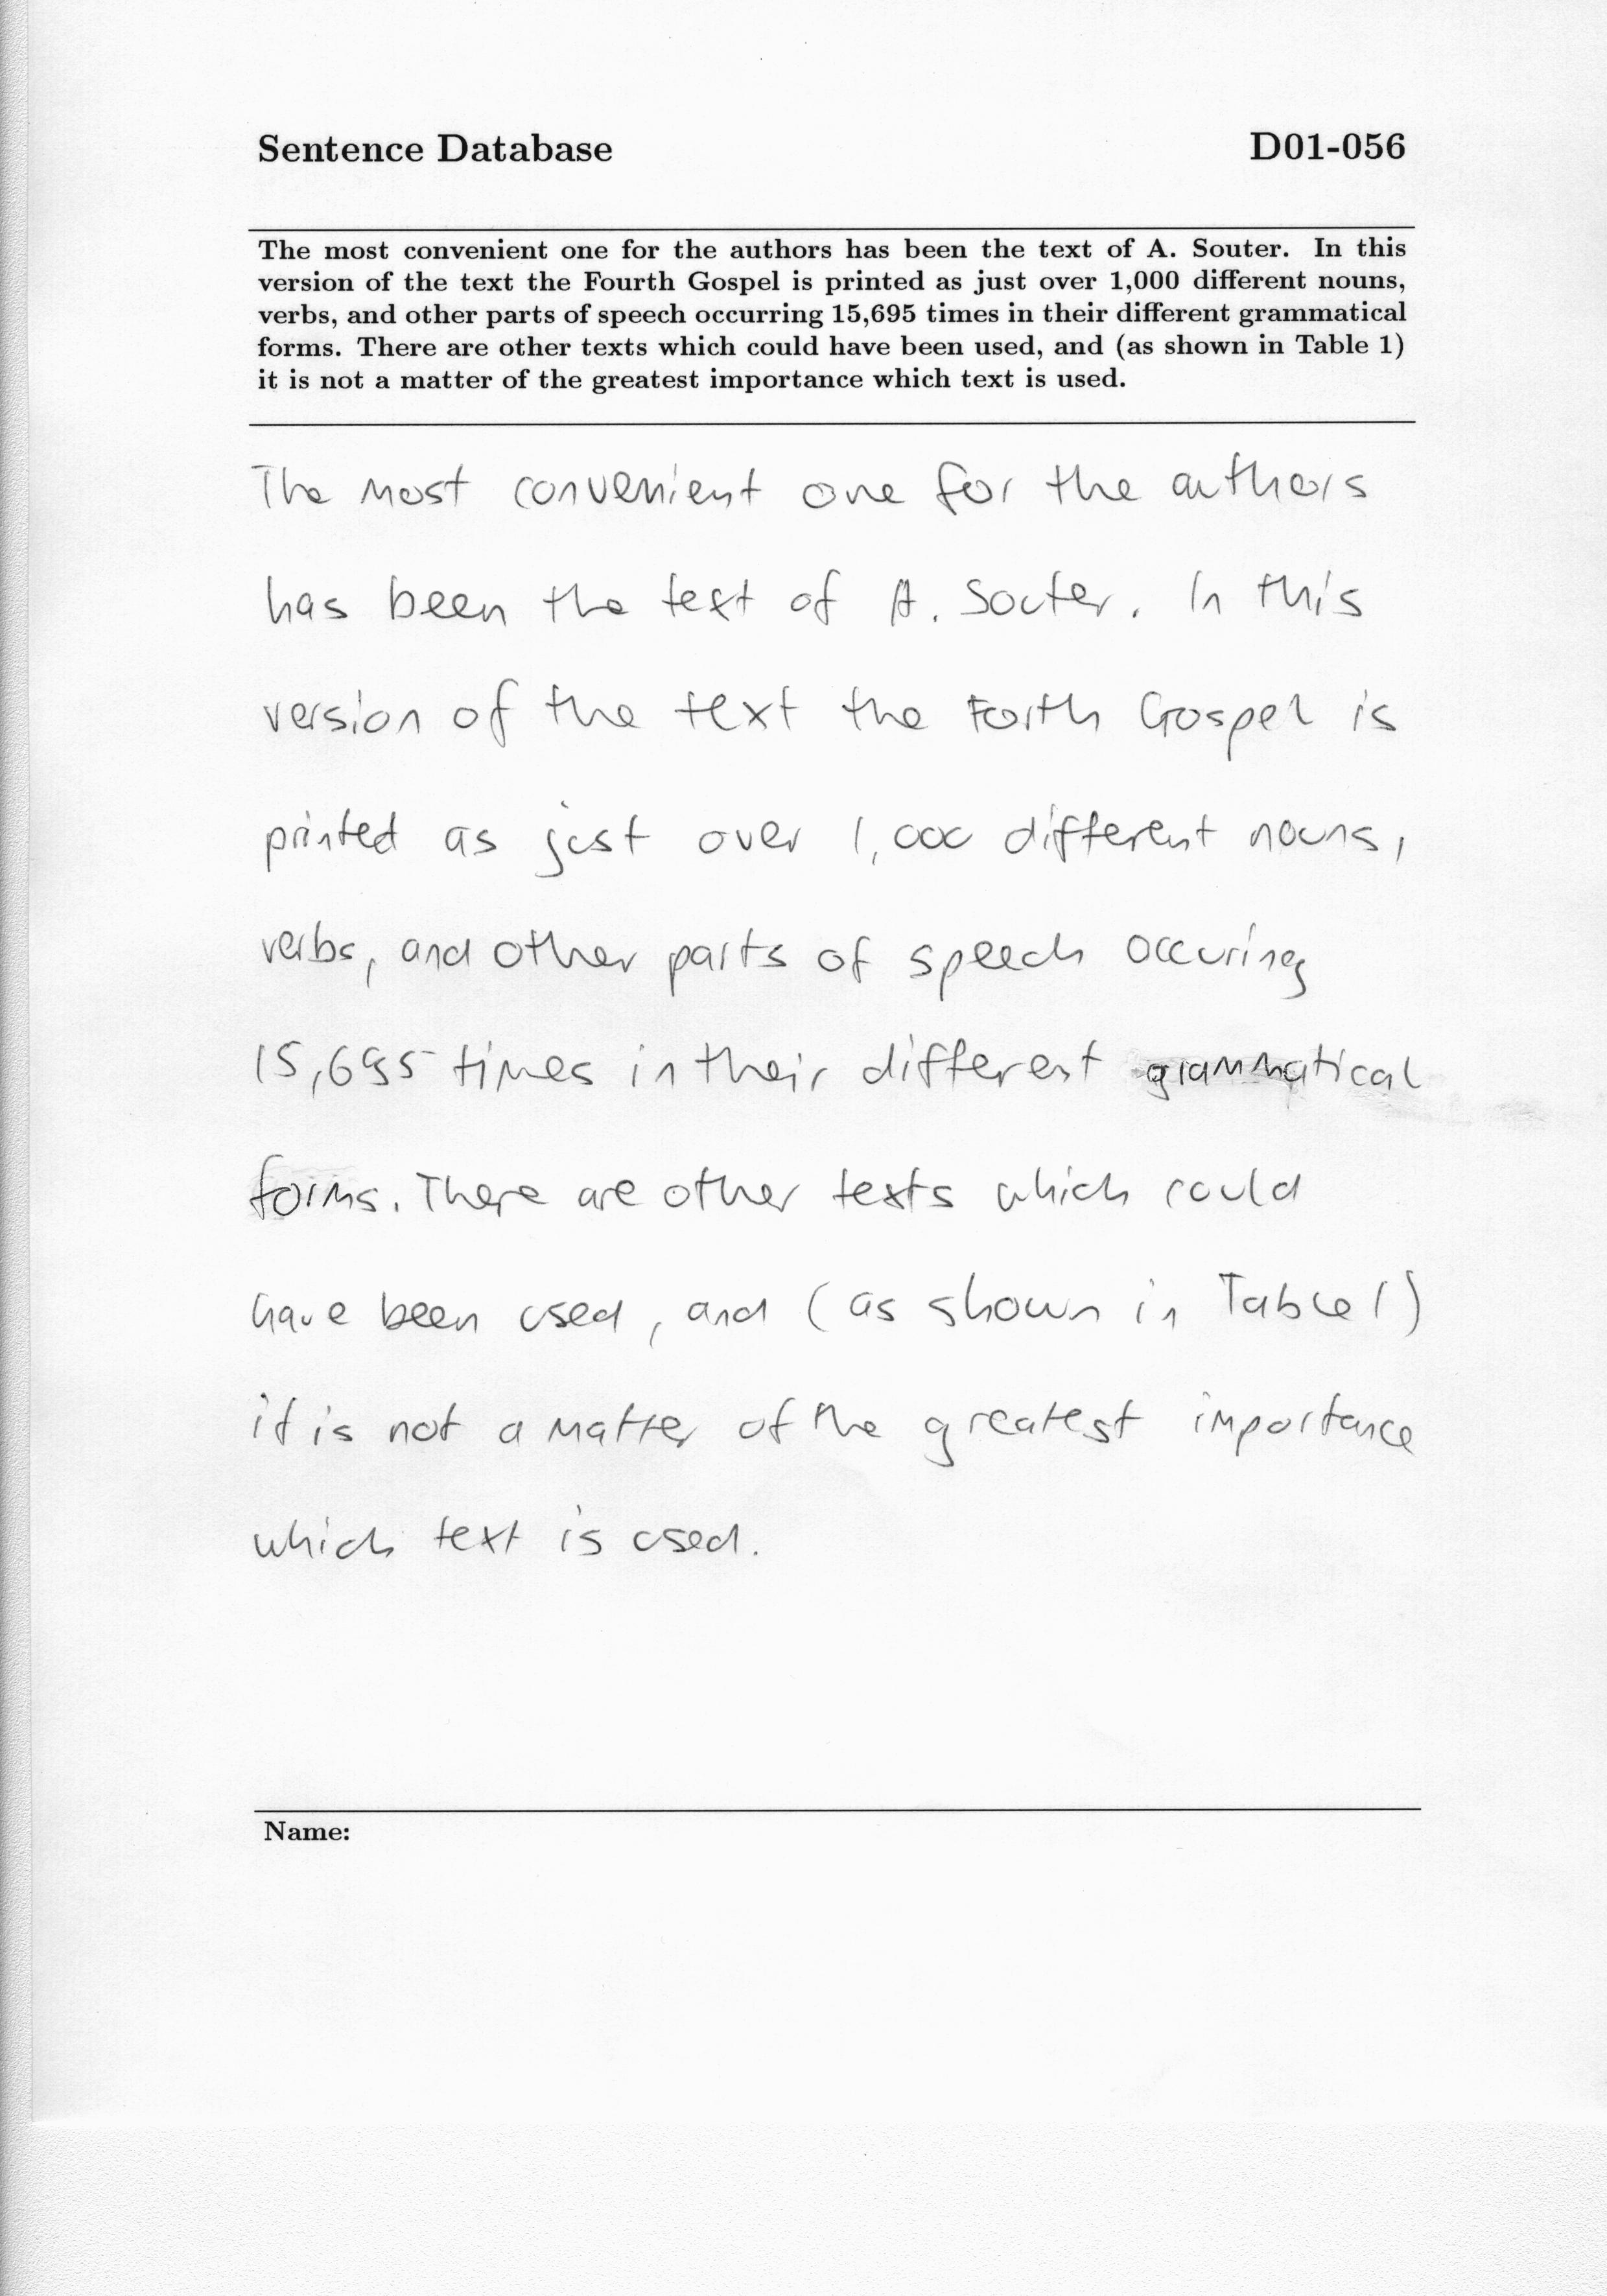 Sentence Database D01-056
The most convenient one for the authors has been the text of A. Souter. In this
version of the text the Fourth Gospel is printed as just over 1,000 different nouns,
verbs, and other parts of speech occurring 15,695 times in their different grammatical
forms. There are other texts which could have been used, and (as shown in Table 1)
it is not a matter of the greatest importance which text is used.
The most convenient one for the authors
has been the text of A. Souter. In this
version of the text the Forth Gospel is
printed as just over 1,000 different nouns,
verbs, and other parts of speech occuring
15,695 times in their different grammatical
forms. There are other texts which could
have been used, and (as shown in Table 1)
it is not a matter of the greatest importance
which text is used.
Name: